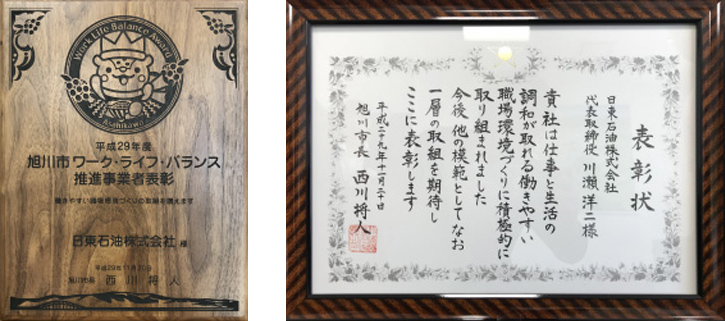 Work Life Balance Award
Asahikawa
平成29年度
旭川市ワーク・ライフ・バランス
推進事業者表彰
働きやすい職場環境づくりの取組を讃えます
日東石油株式会社 様
平成29年11月20日
旭川市長 西川将人
表彰状
日東石油株式会社
代表取締役 川瀬洋二様
貴社は仕事と生活の
調和が取れる働きやすい
職場環境づくりに積極的に
取り組まれました
今後他の模範としてなお
一層の取組を期待し
ここに表彰します
平成二九年十一月二十日
旭川市長 西川将人